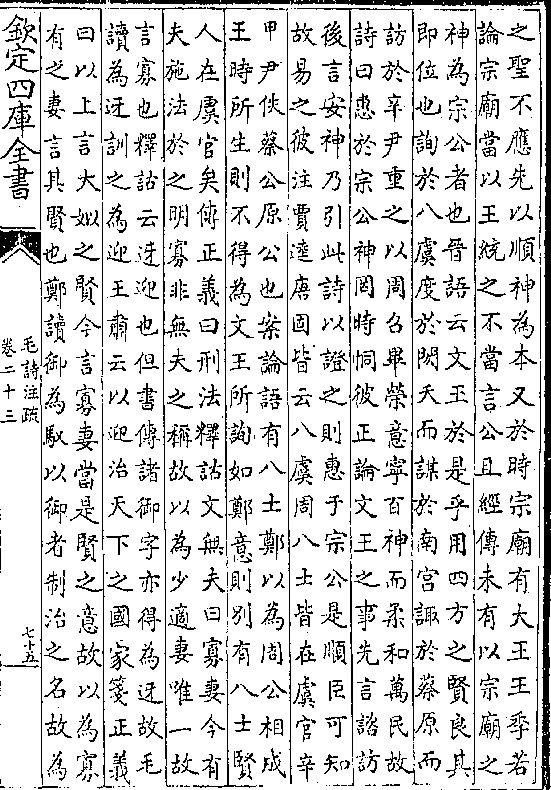 之聖不應先以順神為本又於時宗廟有大王王季若
論宗廟當以王統之不當言公且經傳未有以宗廟之
神為宗公者也晉語云文王於是乎用四方之賢良其
即位也詢於八虞度於閎夭而謀於南宮諏於蔡原而
訪於辛尹重之以周召畢榮意寧百神而柔和萬民故
詩曰惠於宗公神罔時恫彼正論文王之事先言諮訪
後言安神乃引此詩以證之則惠于宗公是順臣可知
故易之彼注賈逵唐固皆云八虞周八士皆在虞官辛
甲尹佚蔡公原公也案論語有八士鄭以為周公相成
王時所生則不得為文王所詢如鄭意則別有八士賢
人在虞官矣傳正義曰刑法釋詁文無夫曰寡妻今有
夫施法於之明寡非無夫之稱故以為少適妻唯一故
言寡也釋詁云迓迎也但書傳諸御字亦得為迓故毛
讀為迓訓之為迎王肅云以迎治天下之國家箋正義
曰以上言大姒之賢今言寡妻當是賢之意故以為寡
有之妻言其賢也鄭讀御為馭以御者制治之名故為
欽定四庫全書
毛詩注疏
卷二十三
七十五